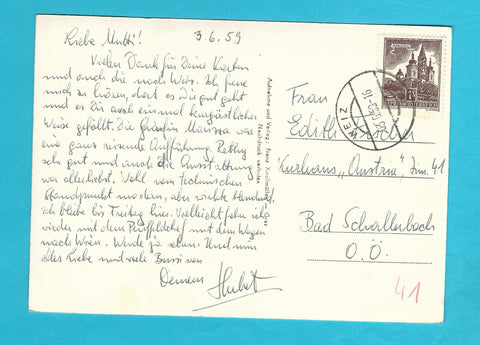 Liebe Mutti! 3.6.59
Vielen Dank für Deine Karten
und auch die nach Weiz. Ich freue
mich zu hören, dass es Dir gut geht
und es Dir auch einmal
Weise gefällt. Die Gräfin Mariza war
eine ganz reizende Aufführung. Rethy
sehr gut und auch die Ausstattung
war allerliebst. Wohl vom technischen
Standpunkt modern, aber
Ich bleibe bis Freitag hier. Vielleicht fahre ich
wieder mit dem mit dem Wagen
nach Wien. Werde ja sehen. Und nun
alles Liebe und viele Bussi von
Deinem Hubert
Aufnahme und Verlag: Franz
Nachdruck verboten
WEIZ
REPUBLIK ÖSTERREICH
Frau
Edith
Kurhaus „Austria", Zim. 41
Bad Schallerbach
O.Ö.
41